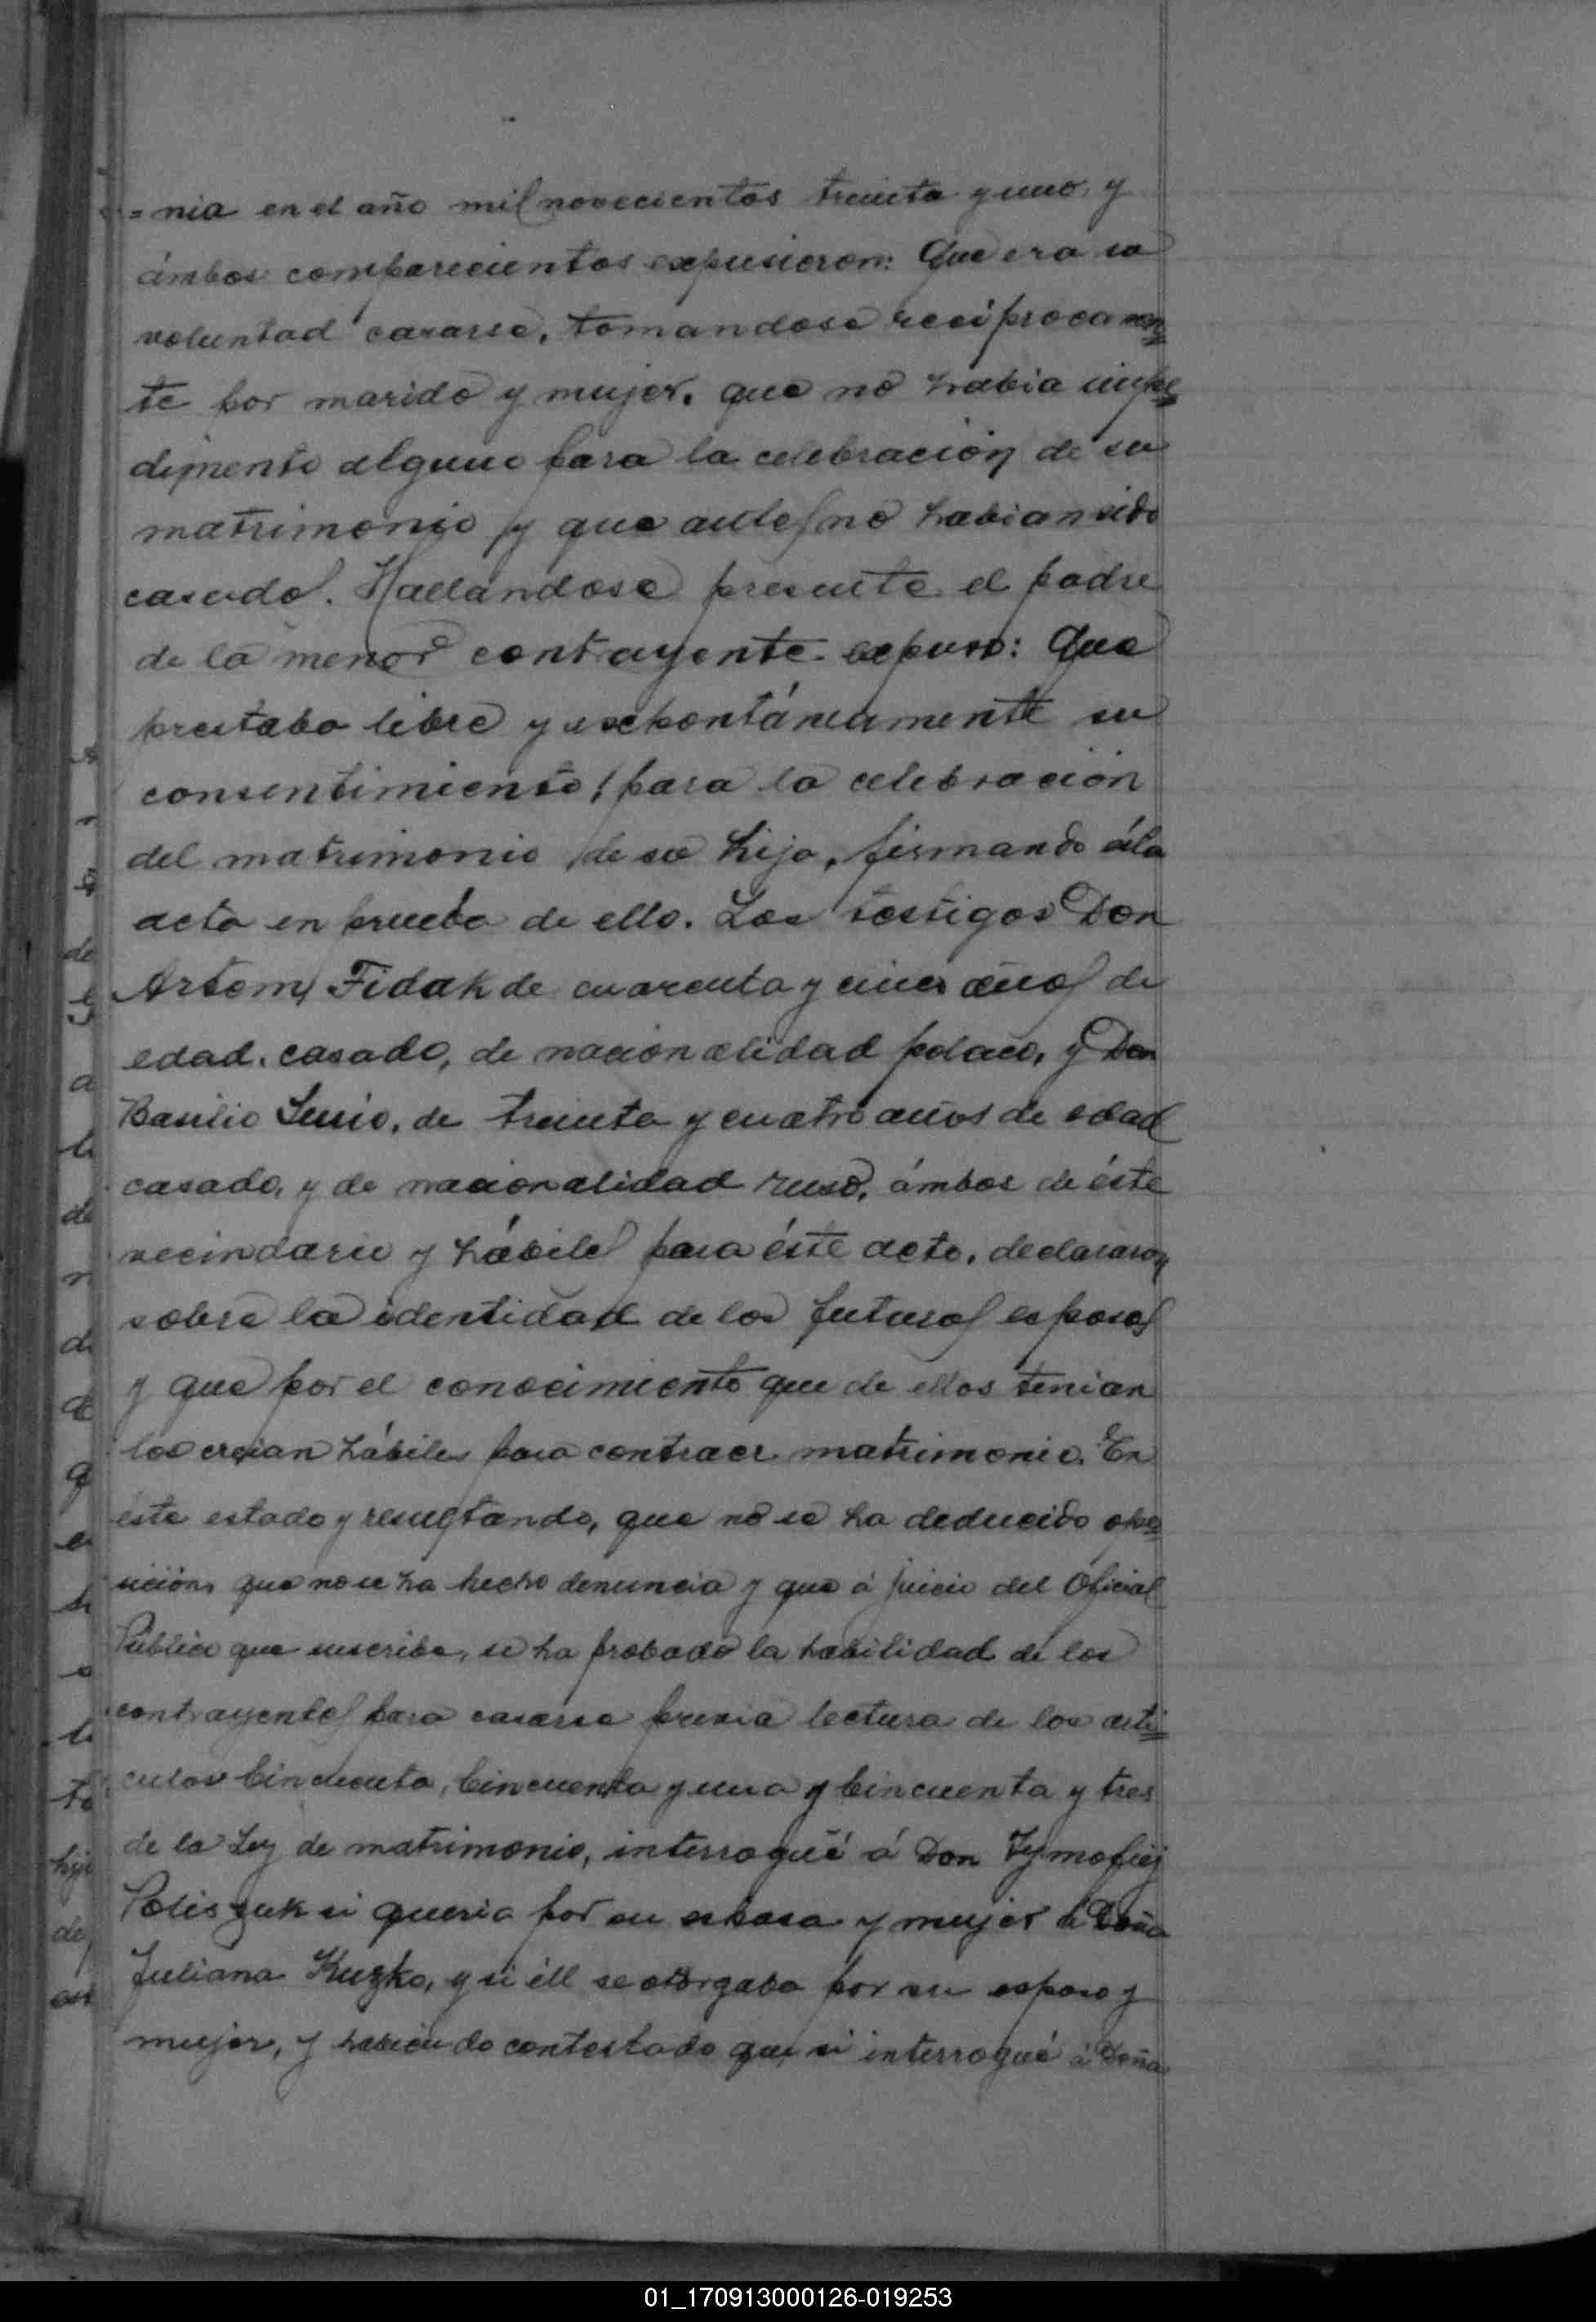 = nia en el año mil novecientos treinta y uno, y
ámbos comparecientos expusieron: Que era su
voluntad casarse, tomandose reciprocamen
te por marido y mujer. que no habia impe
dimento alguno para la celebración de su
matrimonio y que antes no habian sido
casados. Hallandose presente el padre
de la menor contrayente expuso: Que
prestaba libre y expontáneamente su
consentimiento, para la celebración
del matrimonio de su hija, firmando ála
acta en prueba de ello. Los testigos Don
Artemy Fidak de cuarenta y cinco años de
edad. casado, de nacionalidad polaco, y Don
Basilio de treinta y cuatro años de edad
casado, y de nacionalidad ruso, ámbos de éste
vecindario y hábiles para éste acto, declararon
sobre la identidad de los futuros esposos
y que por el conocimiento que de ellos tenian
los creian hábiles para contraer matrimonio. En
este estado y resultando, que no se ha deducido opo
sición, que no se ha hecho denuncia y que á juicio del Oficial
Público que suscribe, se ha probado la habilidad de los
contrayentes para casarse previa lectura de los artí
culos Cincuenta, Cincuenta y uno y Cincuenta y tres
de la Ley de matrimonio, interrogué á Don Tymofiej
Poliszuk si queria por su esposa y mujer á Doña
Juliana Kuzko, y si éll se otorgaba por su esposo y
mujer, y habiendo contestado que si interrogué á Doña
01_170913000126-019253